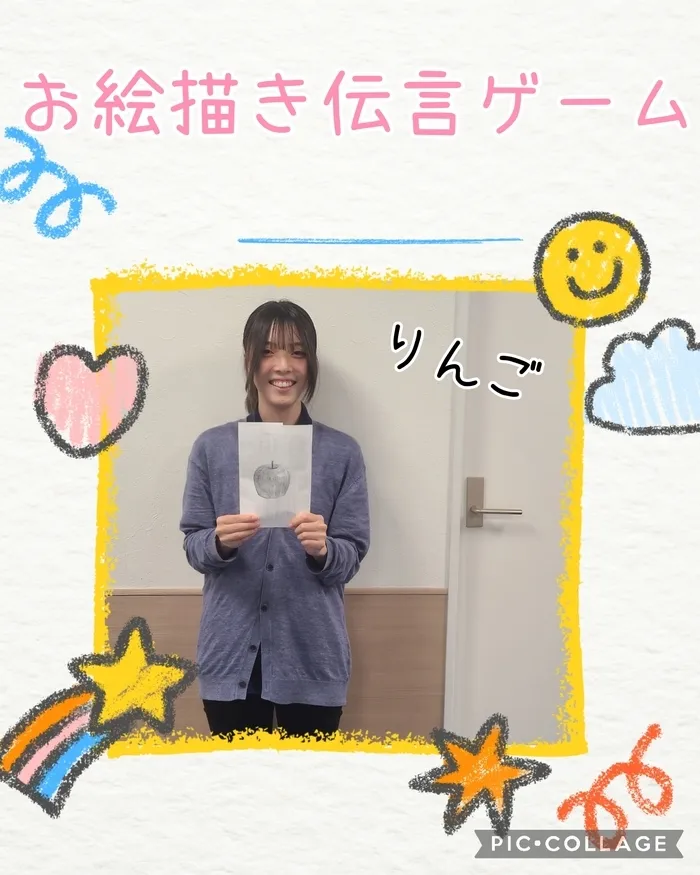 お絵描き伝言ゲーム
りんご
PIC•COLLAGE